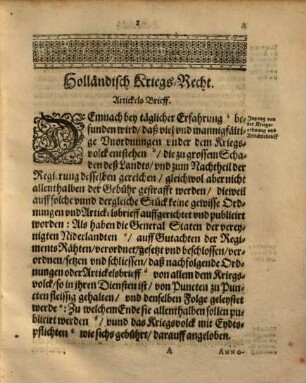 1
Holländisch Kriegs-Recht.
Artickels Brieff.
DEmnach bey täglicher Erfahrung a be-
funden wird / daß viel vnd mannigfälti-
ge Vnordnungen vnder dem Kriegs-
volck entstehen / die zu grossem Scha-
den deß Landes / vnd zum Nachtheil der
Regierung desselben gereichen / gleichwol aber nicht
allenthalben der Gebühr gestrafft werden / dieweil
auff solche vnnd dergleiche Stück keine gewisse Ord-
nungen vnd Artickelsbrieff auffgerichtet vnd publicirt
worden: Als haben die General Staten der verey-
nigten Niderlandten / auff Gutachten der Regi-
ments Räthen / verordnet / gesetzt vnd beschlossen / ver-
ordnen / setzen vnd schliessen / daß nachfolgende Ord-
nungen oder Artickelsbrieff von allem dem Kriegs-
volck / so in ihren Diensten ist / von Puncten zu Pun-
cten fleissig gehalten / vnd denselben Folge geleystet
werde: Zu welchem Ende sie allenthalben sollen pu-
blicirt werden / vnnd das Kriegsvolck mit Eydts-
pflichten wie sichs gebührt / darauff angeloben.
A ANNO-